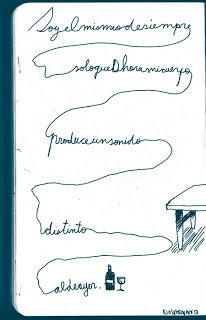 Soy el mismo de siempre
solo que Ahora mi cuerpo
produce un sonido
distinto
al de ayer.